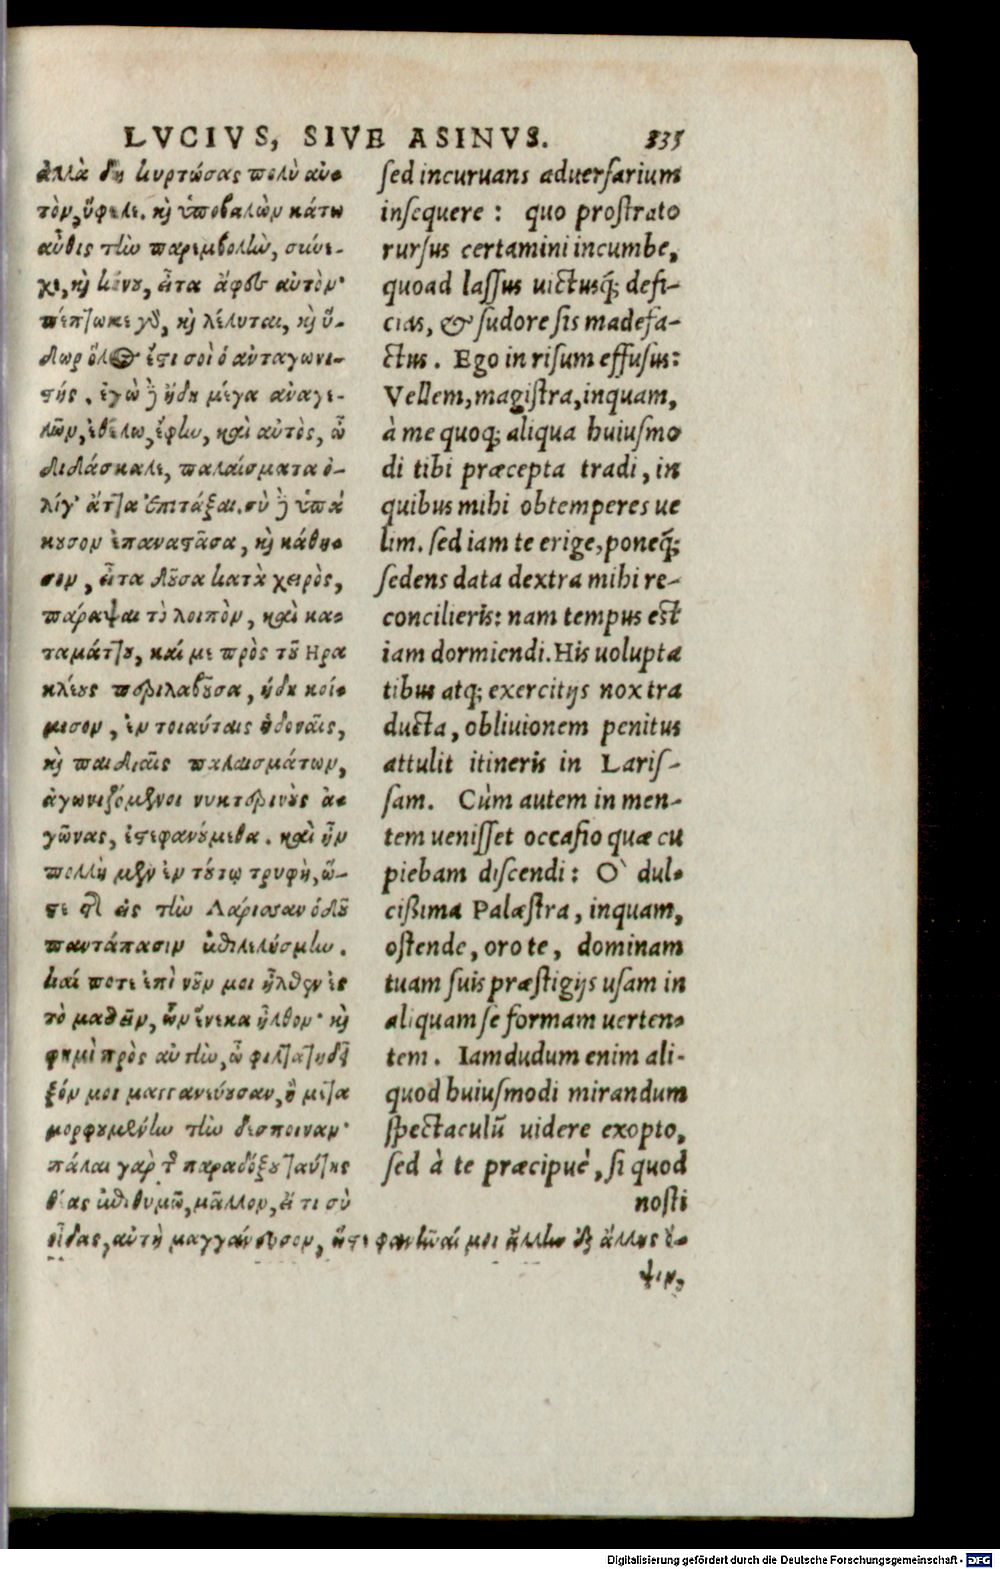 LVCIVS, SIVE ASINVS. 835
ἀλλὰ δὴ κυρτώσας πολὺ αὐ-
τὸν, ὕφελε. καὶ ὑποβαλὼν κάτω
αὖθις τὴν παρεμβολὴν, σύνε-
χε, καὶ κίνου, εἶτα ἄφες αὐτὸν·
πέπτωκε γὰρ, καὶ λέλυται, καὶ ὕ-
δωρ ὅλος ἐστί σοι ὁ ἀνταγωνι-
στής. ἐγὼ δὲ ἤδη μέγα ἀναγε-
λῶν, ἐθέλω, ἔφην, καὶ αὐτὸς, ὦ
διδάσκαλε, παλαίσματα ὀ-
λίγ' ἄττα ἐπιτάξαι. σὺ δὲ ὑπά
κουσον ἐπαναστᾶσα, καὶ κάθη-
σον, εἶτα δοῦσα κατὰ χειρὸς,
πάραψαι τὸ λοιπὸν, καὶ κα-
ταμάττου, καί με πρὸς τοῦ Ηρα
κλέους περιλαβοῦσα, ἤδη κοί-
μισον, ἐν τοιαύταις ἡδοναῖς,
καὶ παιδιαῖς παλαισμάτων,
ἀγωνιζόμενοι νυκτερινοὺς ἀ-
γῶνας, ἐστεφανούμεθα. καὶ ἦν
πολλὴ μὲν ἐν τούτῳ τρυφὴ, ὥ-
στε τῆς εἰς τὴν Λάρισσαν ὁδοῦ
παντάπασιν ἐπιλελύσμην.
καί ποτε ἐπὶ νοῦν μοι ἦλθεν ἐς
τὸ μαθεῖν, ὧν ἕνεκα ἦλθον· καὶ
φημὶ πρὸς αὐτὴν, ὦ φιλτάτη δεῖ
ξόν μοι μαγγανεύουσαν, ἢ μετα
μορφουμένην τὴν δέσποιναν·
πάλαι γὰρ τῆς παραδόξου ταύτης
θέας ἐπιθυμῶ, μᾶλλον, εἴ τι σὺ
οἶδας, αὐτὴ μαγγάνευσον, ὥστε φανῆναί μοι ἄλλην ἐξ ἄλλης ὄ-
ψιν,
sed incuruans aduersarium
insequere : quo prostrato
rursus certamini incumbe,
quoad lassus uictusq; defi-
cias, & sudore sis madefa-
ctus. Ego in risum effusus:
Vellem, magistra, inquam,
à me quoq; aliqua huiusmo
di tibi præcepta tradi, in
quibus mihi obtemperes ue
lim. sed iam te erige, poneq́;
sedens data dextra mihi re-
concilieris: nam tempus est
iam dormiendi. His uolupta
tibus atq; exercitijs nox tra
ducta, obliuionem penitus
attulit itineris in Laris-
sam. Cùm autem in men-
tem uenisset occasio quæ cu
piebam discendi: O` dul-
cißima Palæstra, inquam,
ostende, oro te, dominam
tuam suis præstigijs usam in
aliquam se formam uerten-
tem. Iamdudum enim ali-
quod huiusmodi mirandum
spectaculũ uidere exopto,
sed à te præcipuè, si quod
nosti
Digitalisierung gefördert durch die Deutsche Forschungsgemeinschaft - DFG